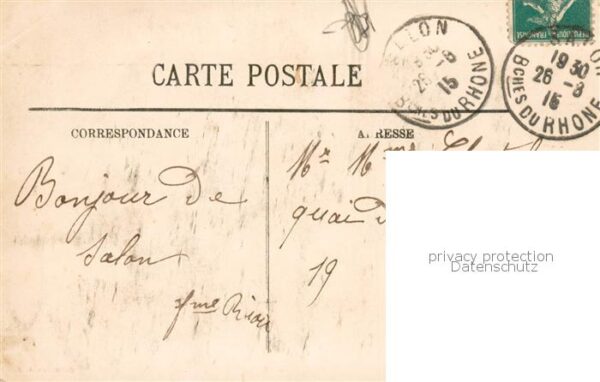 CARTE POSTALE
LLON
26 -8
15
BCHES DU RHONE
19 30
26 -8
15
BCHES DU RHONE
CORRESPONDANCE
ADRESSE
Bonjour de
Salon
Mr Mme
quai
19
privacy protection
Datenschutz